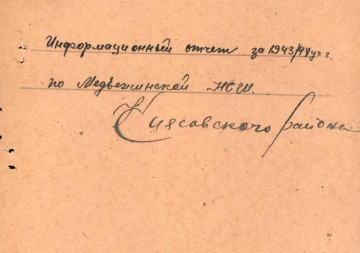 Информационный отчет за 1943/44 уч. г.
по Медвежинской НСШ.
Киясовского района